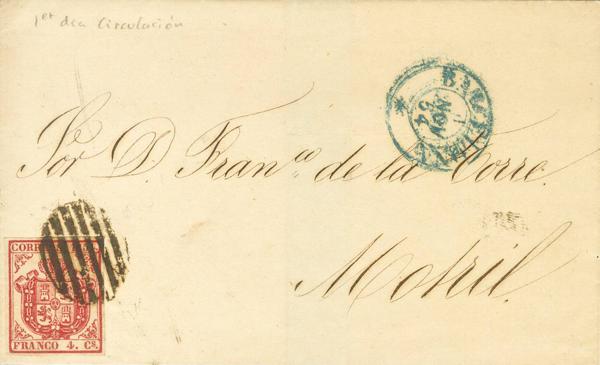 1er dia Circulación
BARCELONA
NOV
Sor D. Franco de la Torre.
Motril.
CORREOS
FRANCO 4. Cs.